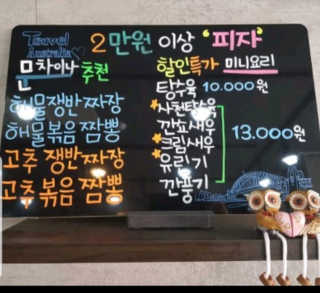 Travel
Australia
2만원 이상 "피자"
문차이나 추천
할인특가 미니요리
해물쟁반짜장
해물볶음짬뽕
고추 쟁반짜장
고추볶음짬뽕
탕수육 10.000원
사천탕수육
깐쇼새우
크림새우
유린기
깐풍기
13.000원